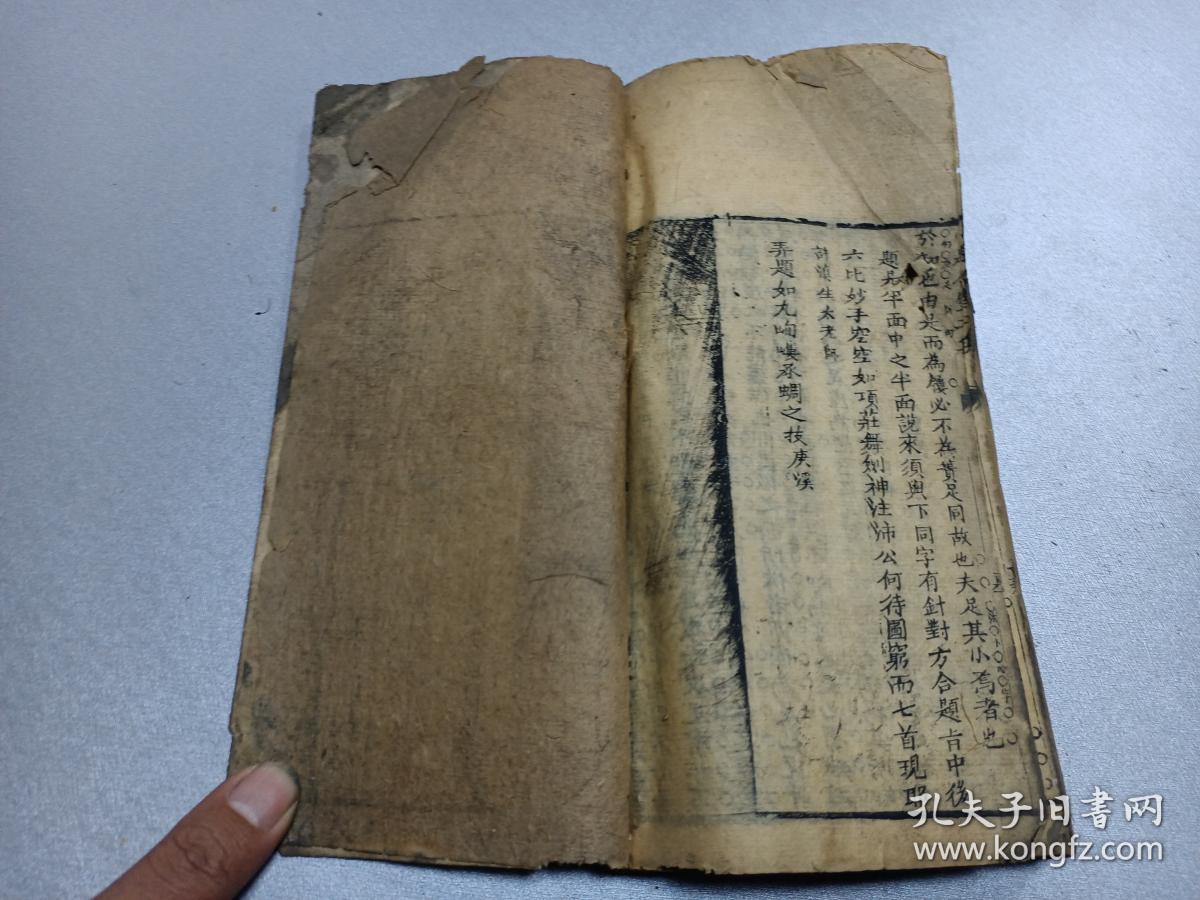 於色也由是而為屨必不為蕢足同故也夫足其小焉者也
題是半面中之半面說來須與下同字有針對方合題旨中後
六比妙手空空如項莊舞劍神注沛公何待圖窮而七首現耶
許滇生太老師
弄題如九峋嘆承蜩之技庚溪
孔夫子旧书网
www.kongfz.com